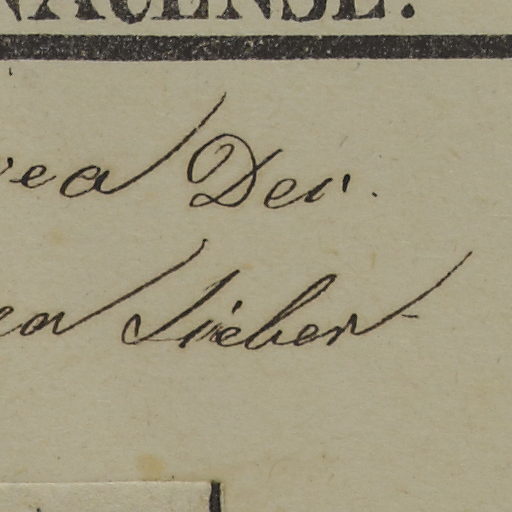 NAUENSE.
rea Dev.
ea Sieber